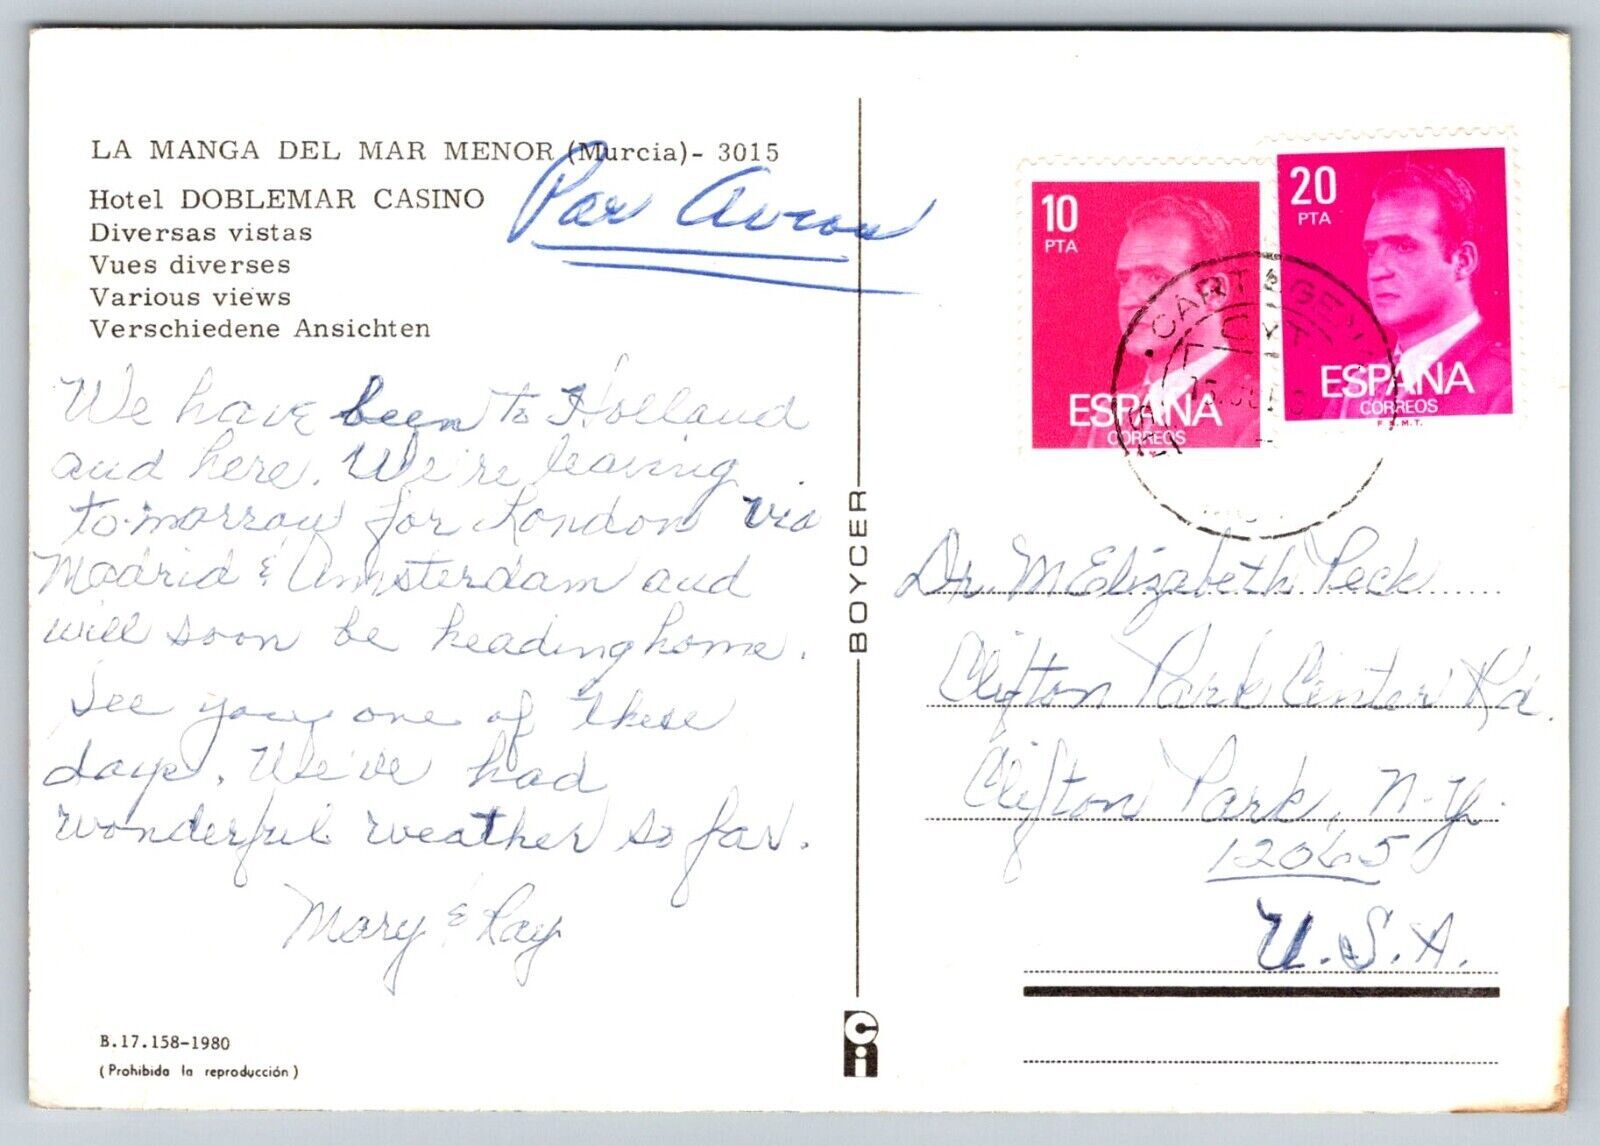 LA MANGA DEL MAR MENOR (Murcia)- 3015
Hotel DOBLEMAR CASINO
Diversas vistas
Vues diverses
Various views
Verschiedene Ansichten
Par Avion
We have been to Holland
and here. We're leaving
to-morrow for London via
Madrid & Amsterdam and
will soon be heading home.
See you one of these
days. We've had
wonderful weather so far.
Mary & Ray
B.17.158-1980
(Prohibida la reproducción)
BOYCER
Ci
10
PTA
ESPAÑA
CORREOS
20
PTA
ESPAÑA
CORREOS
F.N.M.T.
CARTAGENA
Dr. M Elizabeth Peck
Clifton Park Center Rd.
Clifton Park, N.Y.
12065
U.S.A.